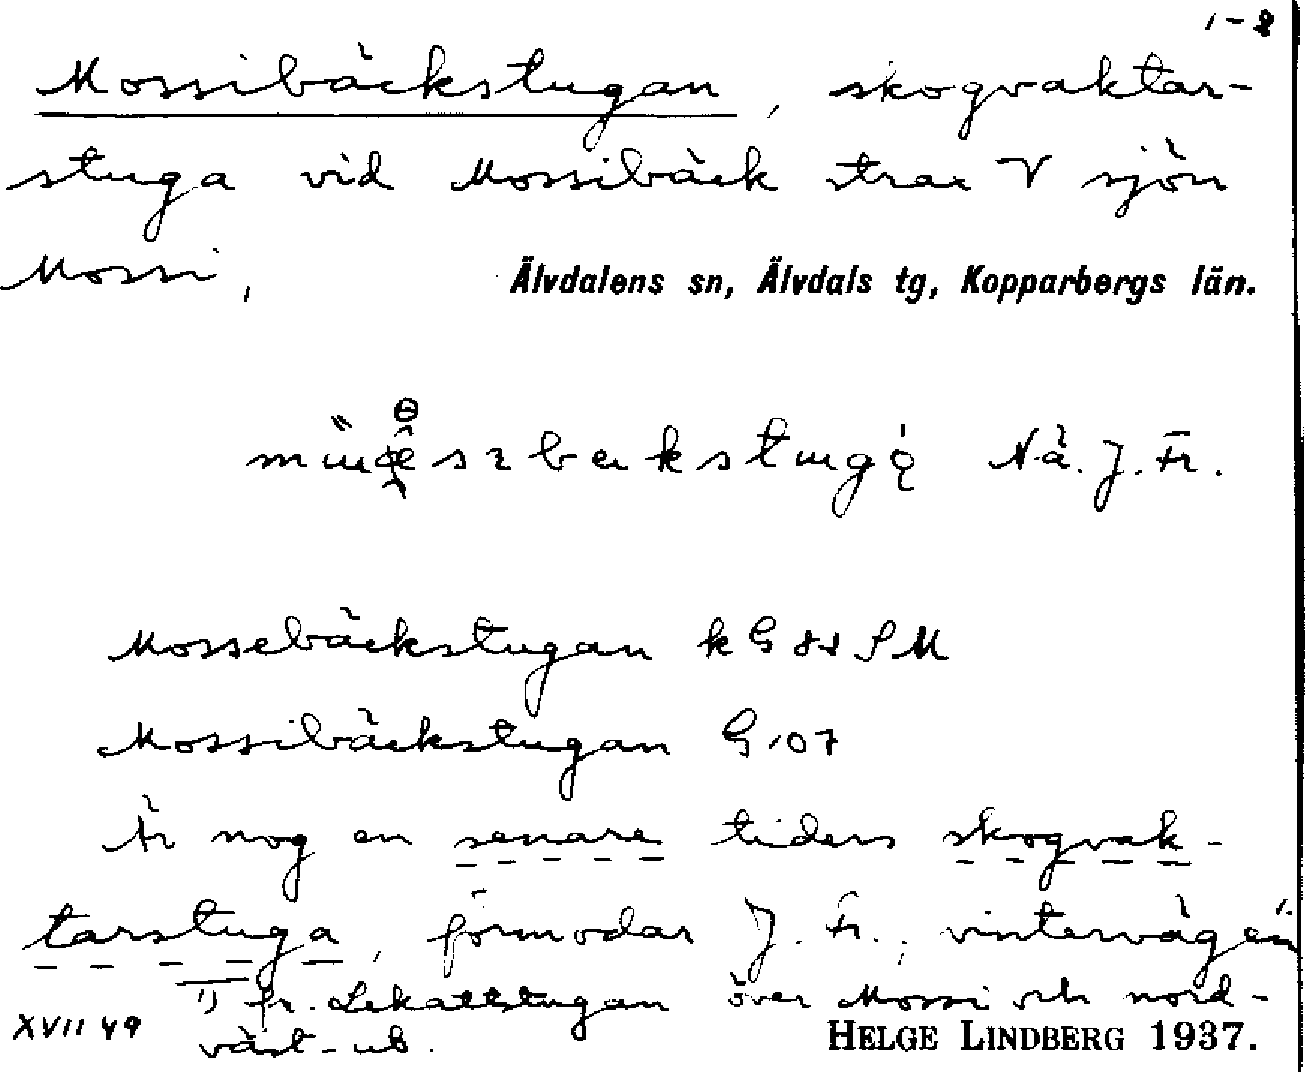 1-2
Mossibäckstugan, skogvaktar-
stuga vid Mossibäck strax V sjön
Mossi, Älvdalens sn, Älvdals tg, Kopparbergs län.
Nä. J. Fr.
Mossebäckstugan kG SM
Mossibäckstugan G 107
Är nog en senare tidens skogvak-
tarstuga, förmodar J. Fr.; vintervägen 1)
1) fr. Lekattstugan över Mossi och nord-
XVII 49 väst-ut. HELGE LINDBERG 1937.